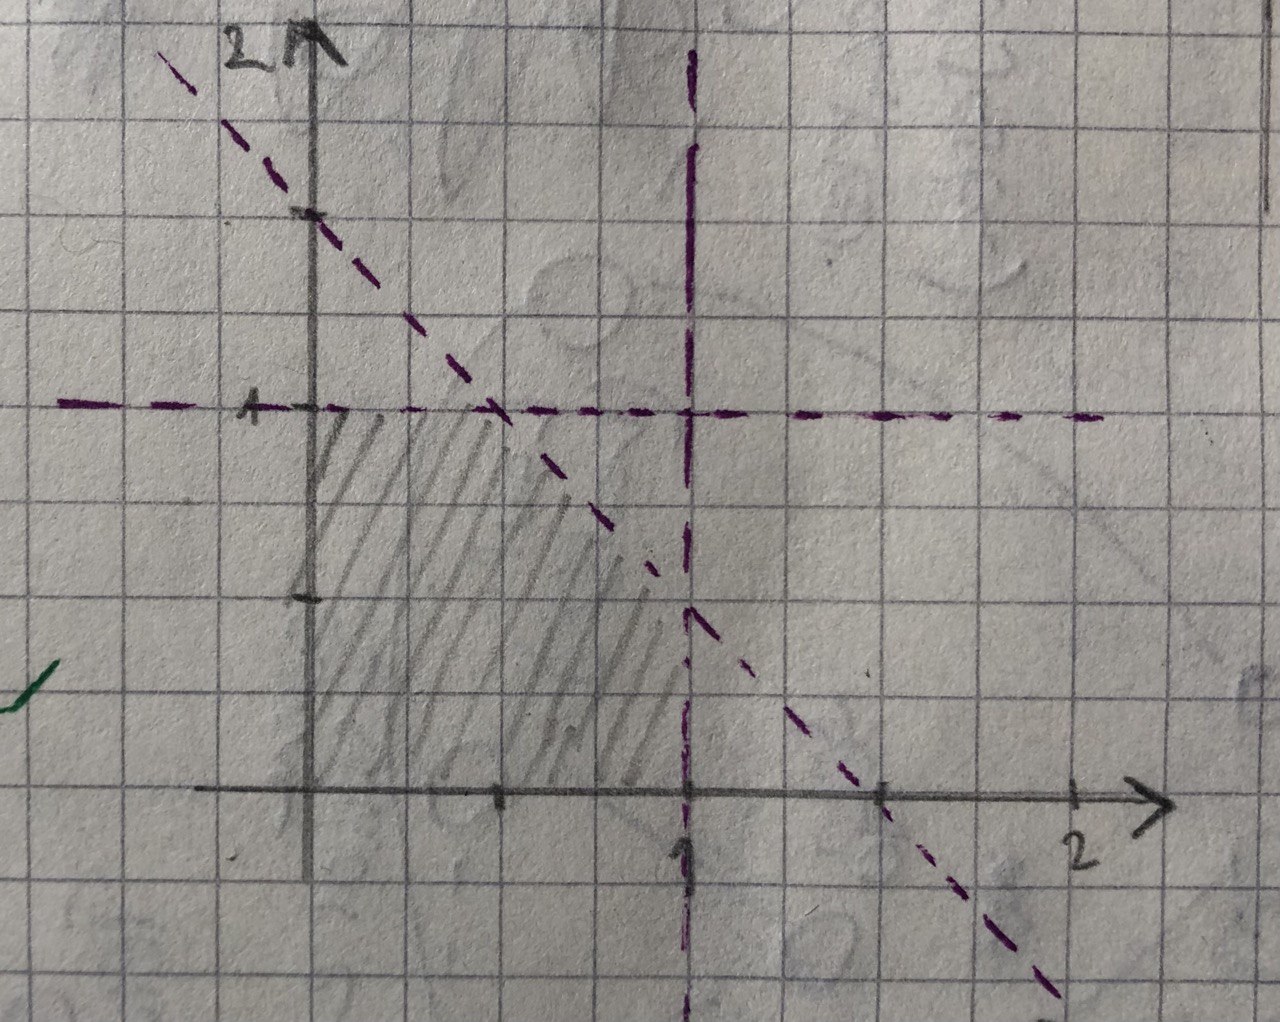 2
1
1
2